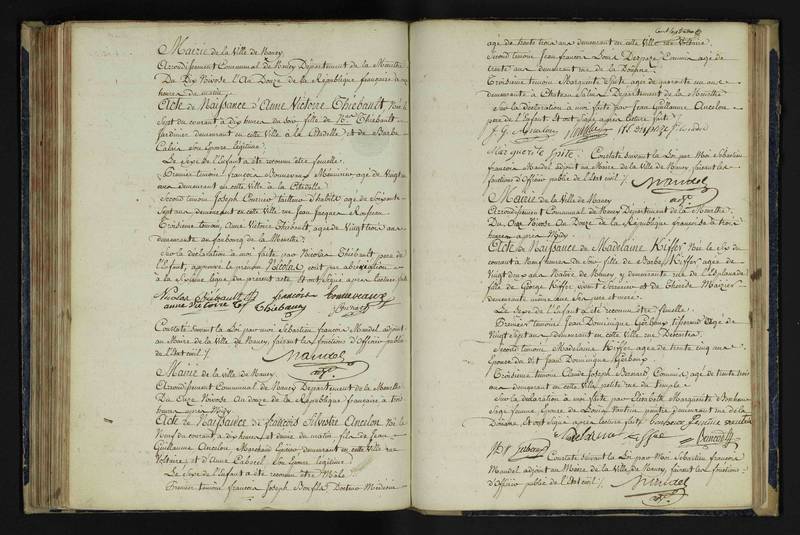 Mairie de la Ville de Nancy
Arrondissement Communal de Nancy Département de la Meurthe
Du Dix Nivose l'An Douze de la République française à
heures du matin
Acte de Naissance d'Anne Victoire Thiébault Née le
Sept du courant à dix heures du soir fille de Nas Thiébault
Jardinier demeurant en cette Ville à la Citadelle et de Barbe
son Epouse légitime
Le Sexe de l'Enfant a été reconnu être femelle
Premier témoin françois Bonneveaux Menuisier agé de Vingt
ans demeurant en cette Ville à la Citadelle
Second témoin Joseph Tailleur d'habits agé de Soixante
Sept ans demeurant en cette Ville rue Jean Jacques Rousseau
Troisième témoin Anne Victoire Thiébault agée de Vingt trois ans
demeurante au faubourg de la Meurthe
Sur la déclaration à moi faite par Nicolas Thiébault pere de
l'Enfant, approuvé le prénom Nicolas écrit par abréviation
à la Sixième ligne du présent acte et ont signé après lecture faite
Nicolas Thiébault françois bonneveaux
anne victoire Thiebaut
Constaté suivant la Loi par moi Sébastien françois Mandel adjoint
au Maire de la Ville de Nancy, faisant les fonctions d'Officier public
de l'état civil
Mandel
adjt
Mairie de la Ville de Nancy
Arrondissement Communal de Nancy Département de la Meurthe
Du Onze Nivose An douze de la République française à trois
heures après Midy
Acte de Naissance de françois Silvestre Ancelon Né le
Neuf du courant à dix heures et demie du matin fils de Jean
Guillaume Ancelon Marchand demeurant en cette Ville rue
Voltaire, et d'Anne Gabriel son Epouse légitime
Le Sexe de l'Enfant a été reconnu être Male
Premier témoin françois Joseph Bonfils Docteur Médecin
agé de trente trois ans demeurant en cette Ville rue Voltaire
Second témoin Jean françois Louis Despaze Commis agé de
trente ans demeurant rue de la Douane
Troisième témoin Marguerite agée de quarante un ans
demeurante à Chateau Salins Département de la Meurthe
Sur la déclaration à moi faite par Jean Guillaume Ancelon
pere de l'Enfant et ont signé après lecture faite
J. G. Ancelon
Marguerite Constaté suivant la Loi par Moi Sébastien
françois Mandel adjoint au Maire de la Ville de Nancy faisant les
fonctions d'Officier public de l'état civil
Mandel
adjt
Mairie de la Ville de Nancy
Arrondissement Communal de Nancy Département de la Meurthe
Du Onze Nivose An Douze de la République française à trois
heures après Midy
Acte de Naissance de Madelaine Kiffer Née le Six du
courant à Neuf heures du Soir fille de Barbe Kiffer agée de
Vingt deux ans Native de Nancy y demeurante rue de l'Esplanade
fille de George Kiffer vivant Serrurier et de Thérèse Mairier
demeurante même rue Ses pere et mere
Le Sexe de l'Enfant a été reconnu être femelle
Premier témoin Jean Dominique Gerboux tisserand agé de
Vingt Sept ans demeurant en cette Ville rue Descartes
Second témoin Madelaine Kiffer agée de trente cinq ans
Epouse du dit Jean Dominique Gerboux
Troisième témoin Claude Joseph Bernard Commis agé de trente trois
ans demeurant en cette Ville petite rue du Temple
Sur la déclaration à moi faite par Elisabeth Marguerite Bonheure
Sage femme Epouse de Louis Vautrin peintre demeurant rue de la
Douane et ont signé après lecture faite
Bernard
Constaté suivant la Loi par Moi Sébastien françois
Mandel adjoint au Maire de la Ville de Nancy, faisant les fonctions
d'Officier public de l'état civil
Mandel
adjt